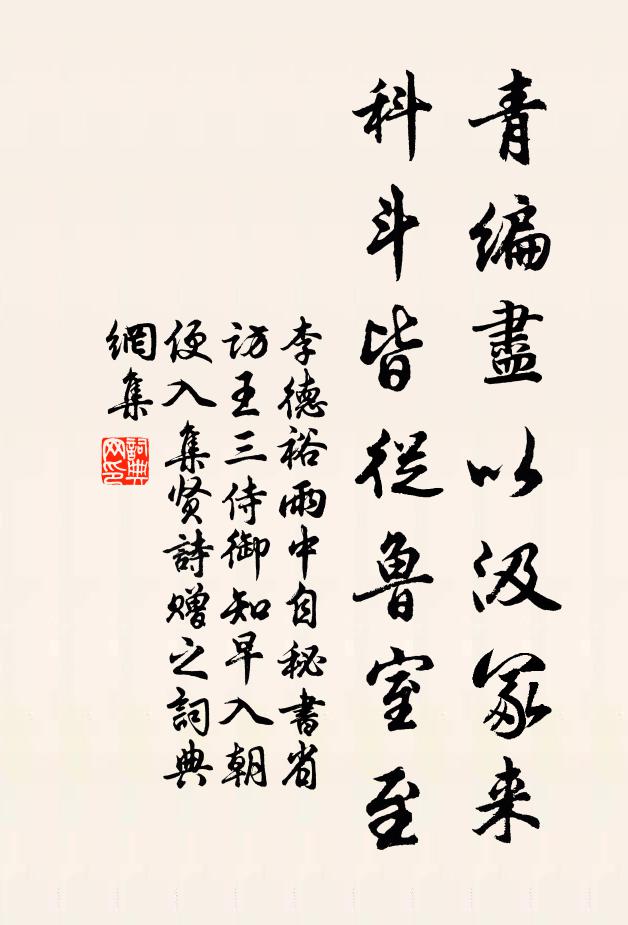 青編盡以汲冢来
科斗皆從魯室至
李德裕雨中自秘書省
訪王三侍御知早入朝
便入集贤詩赠之詞典
網集
詞典
网印